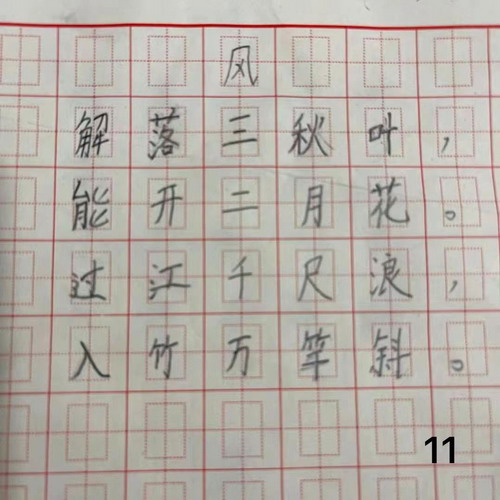 风
解落三秋叶，
能开二月花。
过江千尺浪，
入竹万竿斜。
11